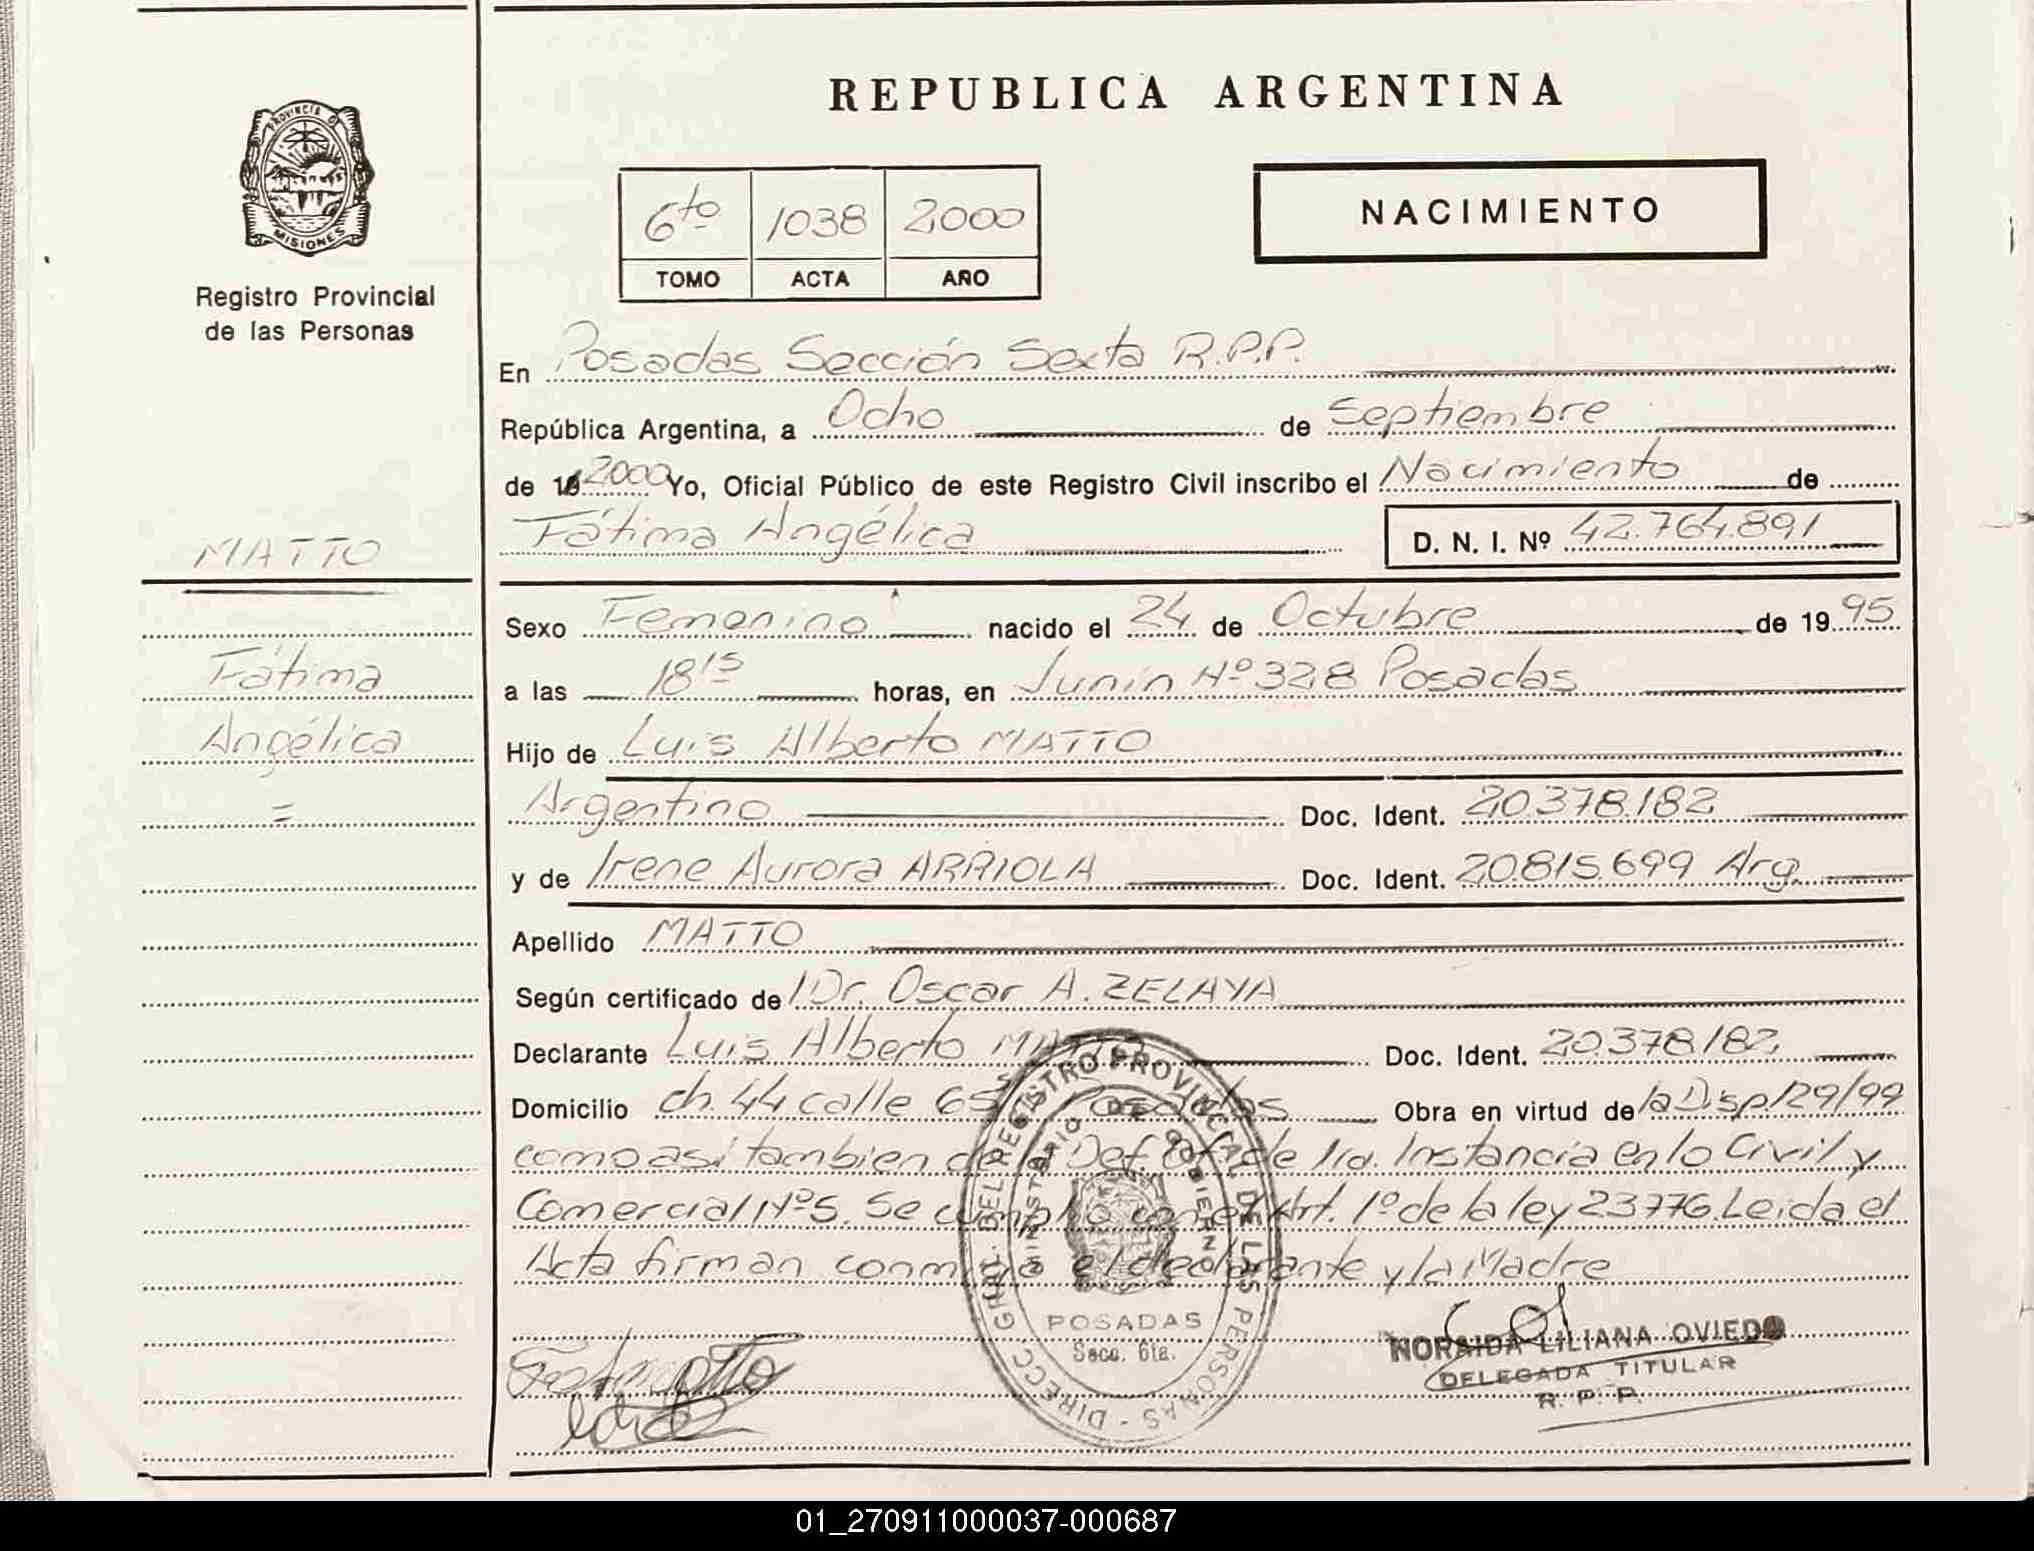 REPUBLICA ARGENTINA
PROVINCIA DE
MISIONES
Registro Provincial
de las Personas
6to 1038 2000
TOMO ACTA AÑO
NACIMIENTO
En Posadas Sección Sexta R.P.P.
República Argentina, a Ocho de Septiembre
de 19 2000 Yo, Oficial Público de este Registro Civil inscribo el Nacimiento de
Fátima Angélica D. N. I. Nº 42.764.891
MATTO
Fátima
Angélica
=
Sexo Femenino nacido el 24 de Octubre de 19 95
a las 18 15 horas, en Junín Nº 328 Posadas
Hijo de Luis Alberto MATTO
Argentino Doc. Ident. 20.378.182
y de Irene Aurora ARRIOLA Doc. Ident. 20.815.699 Arg.
Apellido MATTO
Según certificado de Dr. Oscar A. ZELAYA
Declarante Luis Alberto MATTO Doc. Ident. 20.378.182
Domicilio ch. 44 calle 65 Posadas Obra en virtud de la Disp. 129/99
como asi tambien de la Def. Of. de 1ra. Instancia en lo Civil y
Comercial Nº 5. Se cumplió con el Art. 1º de la ley 23776. Leida el
Acta firman conmigo el declarante y la Madre
DIRECC. GRAL. DEL REGISTRO PROVINCIAL DE LAS PERSONAS
MINISTERIO DE GOBIERNO
POSADAS
Secc. 6ta.
NORAIDA LILIANA OVIEDO
DELEGADA TITULAR
R. P. P.
01_270911000037-000687